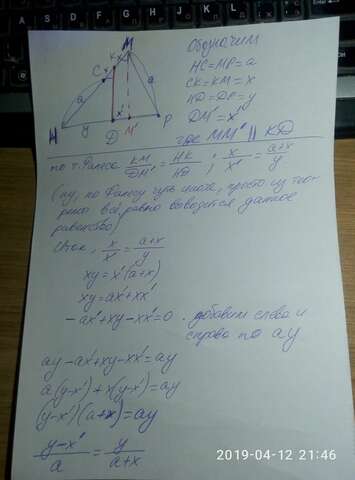 M
K
C
x
x
a
a
H
y
D
x'
M'
P
Обозначим
HC=MP=a
CK=KM=x
HD=DP=y
DM'=x'
где MM' || KD
по т. Фалеса KM/DM' = HK/HD ; x/x' = a+x/y
(ну, по Фалесу чуть иначе, просто из
всё равно выводится данное
равенство)
x/x' = a+x/y
xy=x'(a+x)
xy=ax'+xx'
-ax'+xy-xx'=0 . добавим слева и
справа по ay
ay-ax'+xy-xx'=ay
a(y-x')+x(y-x')=ay
(y-x')(a+x)=ay
y-x'/a = y/a+x
2019-04-12 21:46